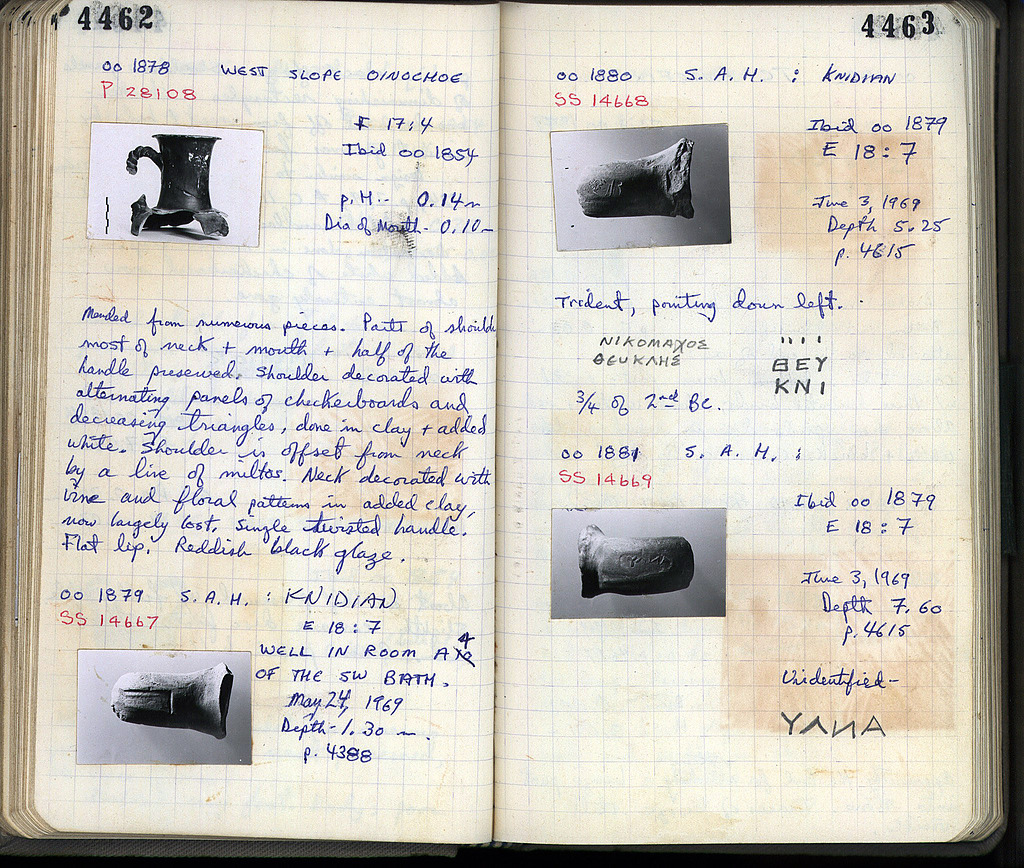 4462
OO 1878 WEST SLOPE OINOCHOE
P 28108
F 17:4
Ibid OO 1854
p. H. - 0.14 m
Dia of Mouth - 0.10 -
Mended from numerous pieces. Parts of should
most of neck + mouth + half of the
handle preserved. Shoulder decorated with
alternating panels of checkerboards and
decreasing triangles, done in clay + added
white. Shoulder is offset from neck
by a line of miltos. Neck decorated with
vine and floral patterns in added clay,
now largely lost. Single twisted handle.
Flat lip. Reddish black glaze.
OO 1879 S. A. H. : KNIDIAN
SS 14667
E 18:7
WELL IN ROOM A 4
OF THE SW BATH.
May 24, 1969
Depth - 1.30 m.
p. 4388
4463
OO 1880 S. A. H. : KNIDIAN
SS 14668
Ibid OO 1879
E 18:7
June 3, 1969
Depth 5.25
p. 4615
Trident, pointing down left.
ΝΙΚΟΜΑΧΟΣ
ΘΕΥΚΛΗΣ
ΘΕΥ
ΚΝΙ
3/4 of 2nd BC.
OO 1881 S. A. H. :
SS 14669
Ibid OO 1879
E 18:7
June 3, 1969
Depth 7.60
p. 4615
Unidentified -